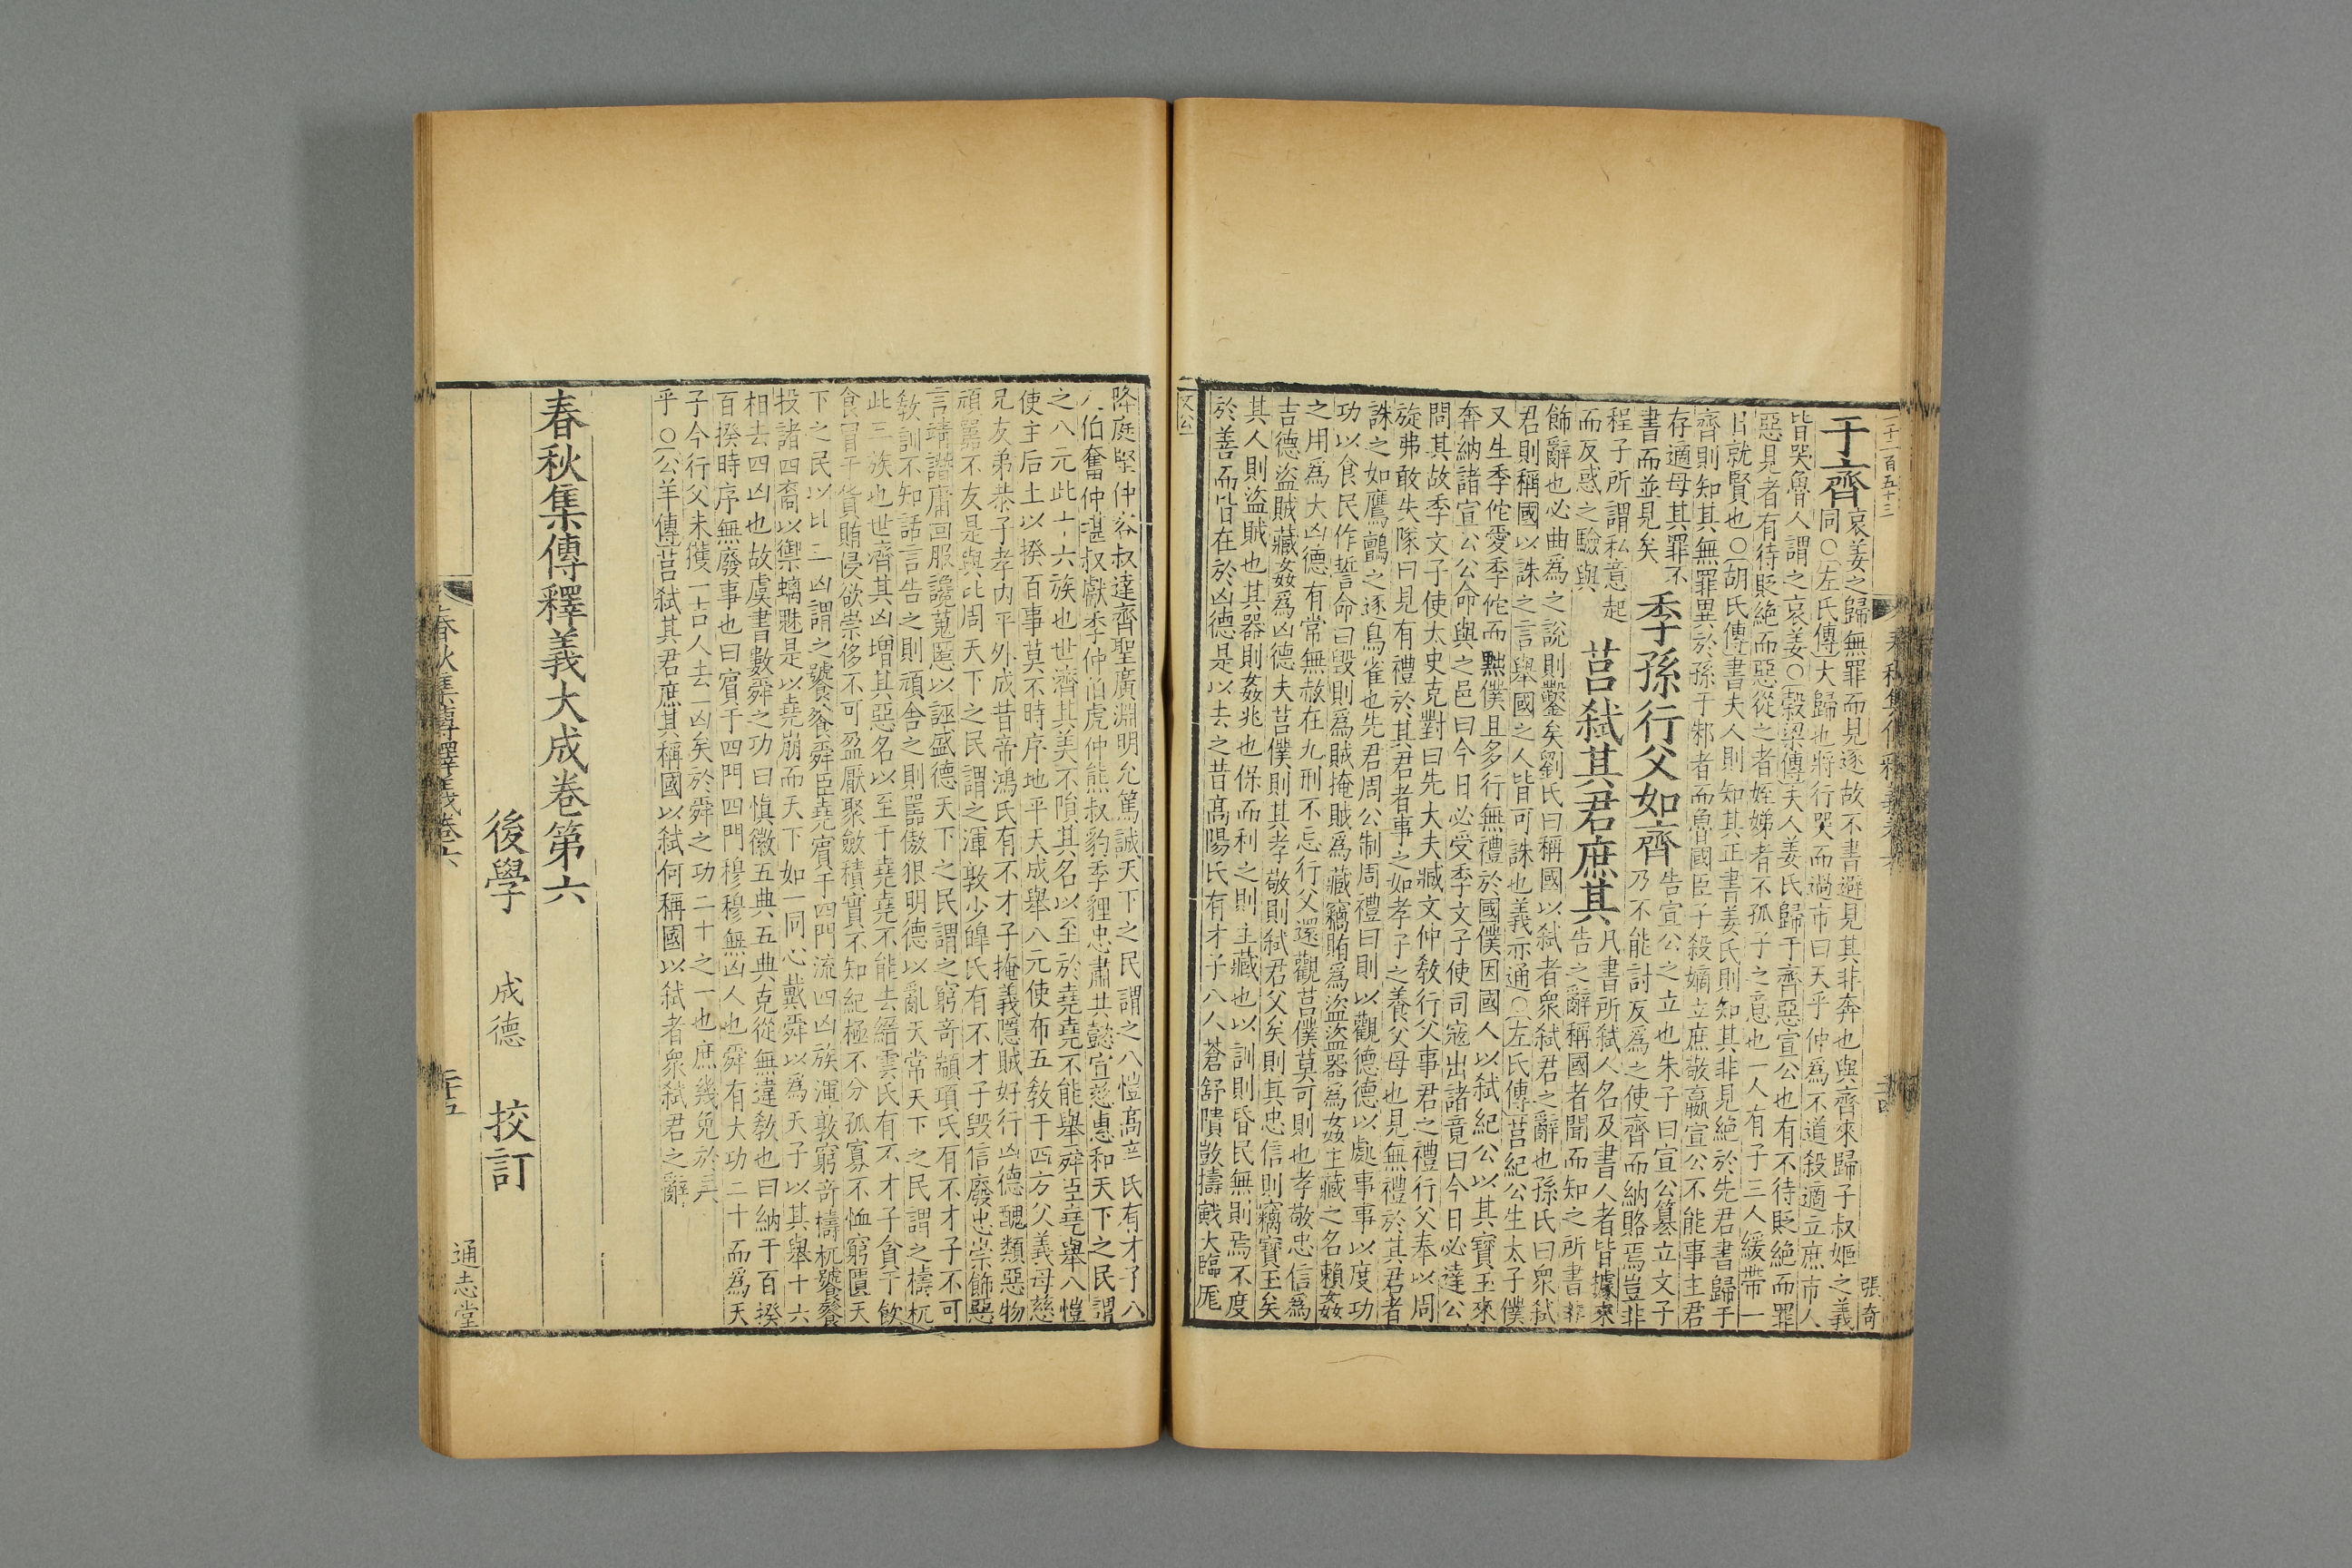 二千二百五十三
春秋集傳釋義卷六
二十四
張奇
于齊
哀姜之歸無罪而見逐故不書遜見其非奔也與齊來歸子叔姬之義
同○左氏傳大歸也將行哭而過市曰天乎仲為不道殺適立庶市人
皆哭魯人謂之哀姜○榖梁傳夫人姜氏歸于齊惡宣公也有不待貶絕而罪
惡見者有待貶絕而惡從之者姪娣者不孤子之意也一人有子三人緩帶一
曰就賢也○胡氏傳書夫人則知其正書姜氏則知其非見絕於先君書歸于
齊則知其無罪異於孫于邾者而魯國臣子殺嫡立庶敬嬴宣公不能事主君
存適母其罪不
書而並見矣
季孫行父如齊
告宣公之立也朱子曰宣公篡立文子
乃不能討反為之使齊而納賂焉豈非
程子所謂私意起
而反惑之驗與
莒弒其君庶其
凡書所弒人名及書人者皆據來
告之辭稱國者聞而知之所書非
飾辭也必曲為之說則鑿矣劉氏曰稱國以弒者眾弒君之辭也孫氏曰眾弒
君則稱國以誅之言舉國之人皆可誅也義亦通○左氏傳莒紀公生太子僕
又生季佗愛季佗而黜僕且多行無禮於國僕因國人以弒紀公以其寶玉來
奔納諸宣公公命與之邑曰今日必受季文子使司寇出諸竟曰今日必達公
問其故季文子使太史克對曰先大夫臧文仲敎行父事君之禮行父奉以周
旋弗敢失隊曰見有禮於其君者事之如孝子之養父母也見無禮於其君者
誅之如鷹鸇之逐鳥雀也先君周公制周禮曰則以觀德德以處事事以度功
功以食民作誓命曰毁則爲賊掩賊爲藏竊賄爲盜盜器爲姦主藏之名賴姦
之用爲大凶德有常無赦在九刑不忘行父還觀莒僕莫可則也孝敬忠信爲
吉德盜賊藏姦爲凶德夫莒僕則其孝敬則弒君父矣則其忠信則竊寶玉矣
其人則盜賊也其器則姦兆也保而利之則主藏也以訓則昏民無則焉不度
於善而皆在於凶德是以去之昔高陽氏有才子八人蒼舒隤敳擣戭大臨厖
文公
降庭堅仲容叔達齊聖廣淵明允篤誠天下之民謂之八愷高辛氏有才子八
人伯奮仲堪叔獻季仲伯虎仲熊叔豹季貍忠肅共懿宣慈惠和天下之民謂
之八元此十六族也世濟其美不隕其名以至於堯堯不能舉舜臣堯舉八愷
使主后土以揆百事莫不時序地平天成舉八元使布五敎于四方父義母慈
兄友弟恭子孝内平外成昔帝鴻氏有不才子掩義隱賊好行凶德醜類惡物
頑嚚不友是與比周天下之民謂之渾敦少皥氏有不才子毁信廢忠崇飾惡
言靖譖庸回服讒蒐慝以誣盛德天下之民謂之窮奇顓頊氏有不才子不可
敎訓不知話言告之則頑舍之則嚚傲狠明德以亂天常天下之民謂之檮杌
此三族也世濟其凶增其惡名以至于堯堯不能去縉雲氏有不才子貪于飲
食冒于貨賄侵欲崇侈不可盈厭聚斂積實不知紀極不分孤寡不恤窮匱天
下之民以比三凶謂之饕餮舜臣堯賓于四門流四凶族渾敦窮奇檮杌饕餮
投諸四裔以禦螭魅是以堯崩而天下如一同心戴舜以爲天子以其舉十六
相去四凶也故虞書數舜之功曰愼徽五典五典克從無違敎也曰納于百揆
百揆時序無廢事也曰賓于四門四門穆穆無凶人也舜有大功二十而爲天
子今行父未獲一吉人去一凶矣於舜之功二十之一也庶幾免於戾
乎○公羊傳莒弒其君庶其稱國以弒何稱國以弒者眾弒君之辭
春秋集傳釋義大成卷第六
後學 成德 挍訂
春秋集傳釋義卷六
二十五
通志堂